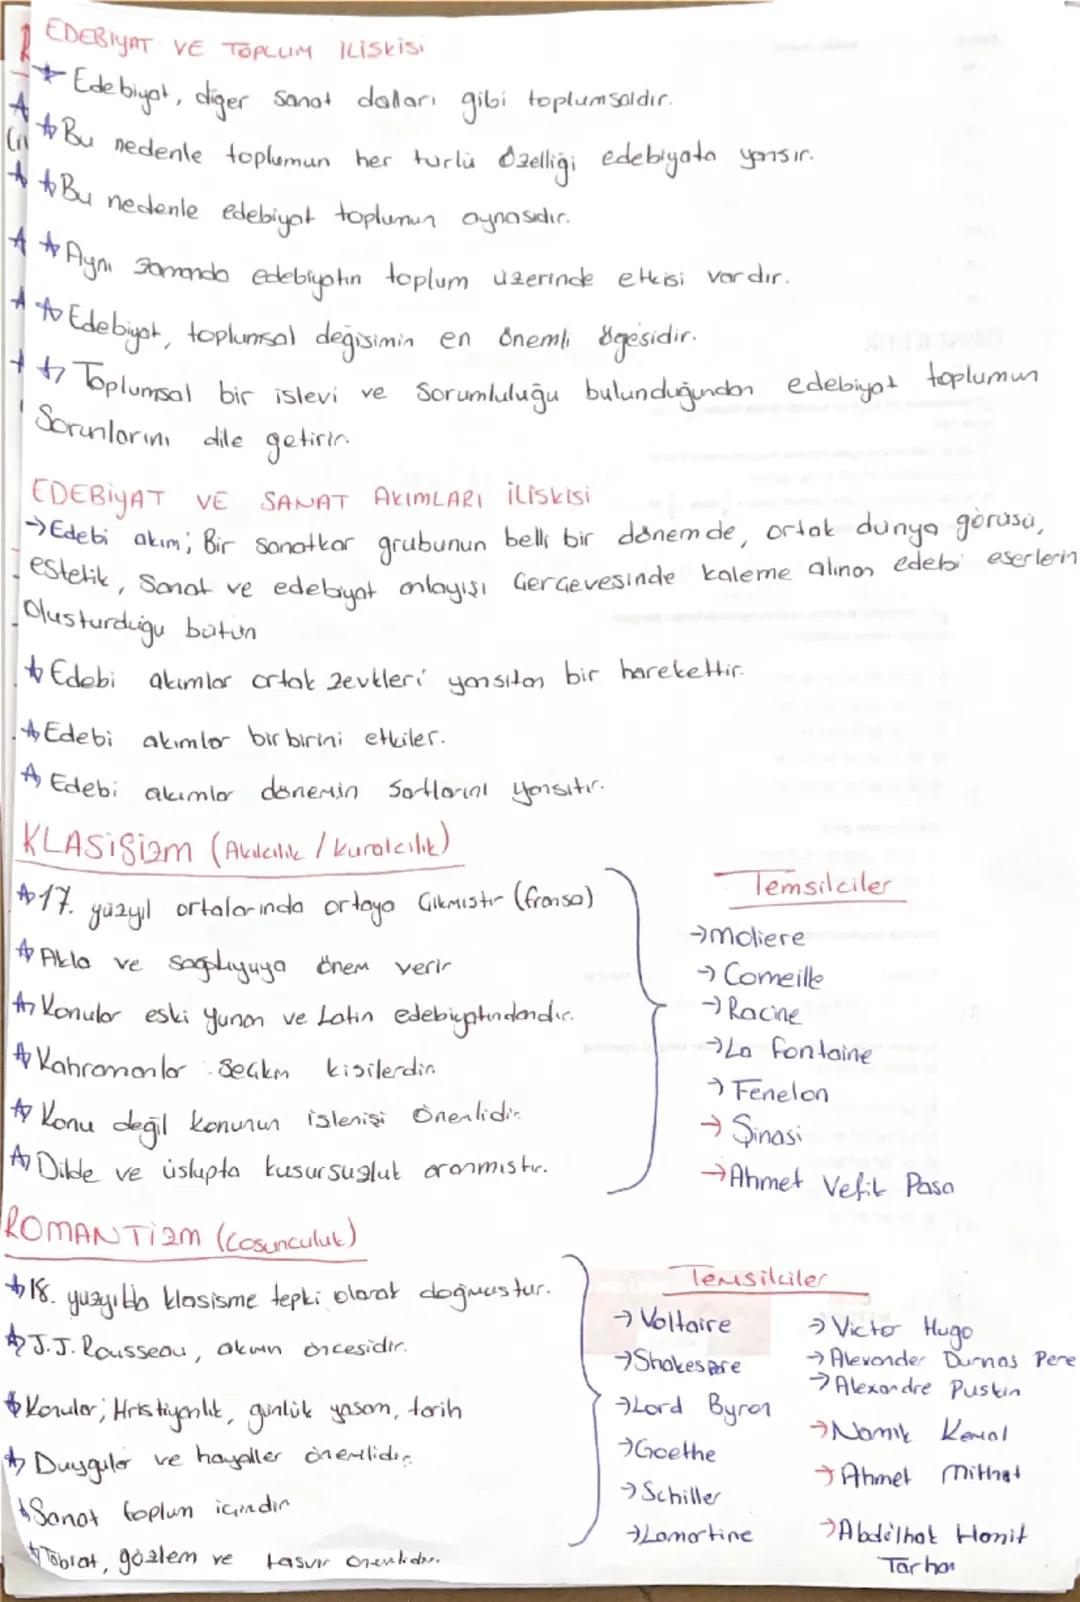 EDEBİYAT VE TOPLUM İLİSKİSİ
Edebiyat, diğer sanat dalları gibi toplumsaldır.
Bu nedenle toplumun her türlü özelliği edebiyata yansır.
Bu nedenle edebiyat toplumun aynasıdır.
Aynı zamanda edebiyatın toplum üzerinde etkisi vardır.
Edebiyat, toplumsal değişimin en önemli öğesidir.
Toplumsal bir işlevi ve Sorumluluğu bulunduğundan edebiyat toplumun
Sorunlarını dile getirir.
EDEBİYAT VE SANAT AKIMLARI İLİSKİSİ
→Edebi akım; Bir sanatkar grubunun belli bir dönemde, ortak dünya görüsü,
estetik, Sanat ve edebiyat anlayışı Çerçevesinde kaleme alınan edebi eserlerin
Olusturduğu bütün
Edebi akımlar ortak zevkleri yansıtan bir harekettir.
Edebi akımlar birbirini etkiler.
Edebi akımlar dönemin Şartlarını yansıtır.
KLASİSİZM (Akılcılık / kuralcılık)
17. yüzyıl ortalarında ortaya Çıkmıstır (fransa)
Akla ve sağduyuya önem verir
Konular eski yunan ve Latin edebiyatındandır.
Kahramanlar Seçkin kisilerdir.
Konu değil konunun işlenişi Önemlidir.
Dilde ve üslupta kusursuzluk aranmıstır.
Temsilciler
→Moliere
→ Corneille
→ Racine
→La fontaine
→ Fenelon
→ Şinasi
→Ahmet Vefik Pasa
ROMANTİZM (Cosunculuk)
18. yüzyılda klasisme tepki olarak doğmustur.
J.J. Rousseau, akımın öncesidir.
Konular; Hristiyanlık, günlük yasam, tarih
Duygular ve hayaller önemlidir.
Sanat toplum içindir
Tabiat, gözlem ve tasvir önemlidir.
Temsilciler
→ Voltaire
→Shakespare
→Lord Byron
→Goethe
→Schiller
→Lamartine
→Victor Hugo
→Alexander Dumas Pere
→Alexandre Puskin
→Namık Kemal
→Ahmet Mithat
→Abdülhak Hamit
Tarhan